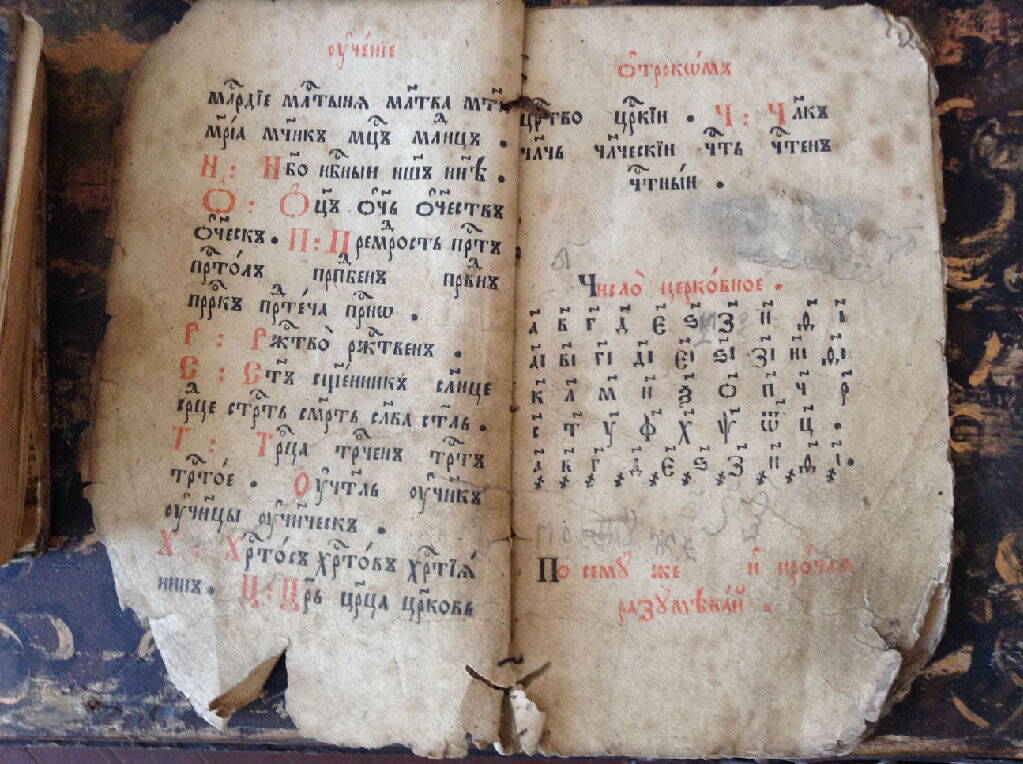 оу҆че́нїе
мл҃рдїе мл҃тыня мл҃тва мт҃ъ
мр҃іа мч҃никъ мц҃ъ млⷣнцъ .
Н : Н҃бо нб҃ный нш҃ъ нн҃ѣ .
Ѻ : Ѻ҆ц҃ъ ѻ҆ч҃ь ѻ҆ч҃ествъ
ѻ҆ч҃ескъ . П : Премⷣрость прⷭ҇тъ
прⷭ҇то́лъ прпⷣбенъ првⷣнъ
прⷪ҇ркъ прⷣте́ча прⷭ҇нѡ .
Р : Ржⷭ҇тво̀ ржⷭ҇твенъ .
С : С҃тъ сщ҃е́нникъ сл҃нце
срⷣце стрⷭ҇ть сме́рть сла́ва ст҃ль .
Т : Трⷪ҇ца трⷪ҇ченъ трⷭ҇тъ
трⷭ҇то́е . Оу҆чт҃ль оу҆чн҃къ
оу҆чн҃цы оу҆чн҃ческъ .
Х : Хрⷭ҇то́съ хрⷭ҇то́въ хрⷭ҇тїѧ́
нинъ . Ц : Цр҃ь цр҃ца цр҃ковь
ѻ҆трокѡ́мъ
црⷭ҇тво црⷭ҇кїи . Ч : Чл҃къ
чл҃чь чл҃ческїи чⷭ҇ть чⷭ҇тенъ
чⷭ҇тны́й .
Число̀ церко́вное .
а҃ в҃ г҃ д҃ є҃ ѕ҃ з҃ и҃ ѳ҃ і҃
аі҃ ві҃ гі҃ ді҃ єі҃ ѕі҃ зі҃ иі҃ ѳі҃
к҃ л҃ м҃ н҃ ѯ҃ о҃ п҃ ч҃ р҃
с҃ т҃ у҃ ф҃ х҃ ѱ҃ ѿ҃ ц҃ .
҂а҃ ҂в҃ ҂г҃ ҂д҃ ҂є҃ ҂ѕ҃ ҂з҃ ҂и҃ ҂ѳ҃ ҂і҃ .
По семꙋ̀ же и҆ про́чая
разꙋмѣва́й .